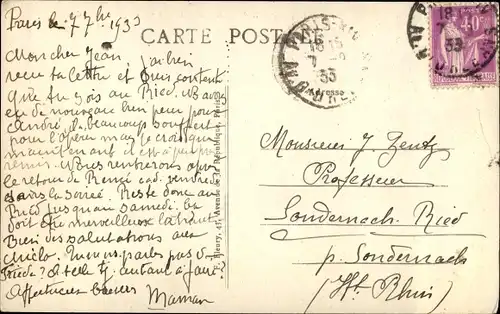 Paris le 7 7bre 1933
CARTE POSTALE
Mon cher Jean, j'ai bien
reçu ta lettre et suis contente
que tu sois au Ried. Nous avons
eu de nouveau bien peur pour
André, il a beaucoup souffert
pour l'opérer mais je crois que
maintenant il est à
Nous rentrerons après
le retour de René càd. vendredi
dans la soirée. Reste donc au
Ried jusqu'au samedi. Ça
doit être merveilleux là haut.
Bien des salutations aux
Tu ne me parles pas de
A-t-elle autant à faire?
Affectueux baisers
Maman
Fleury, 47, Avenue de la République, Paris
PARIS
18
7 - 9
33
Adresse
40c
18
33
Monsieur J. Zentz
Professeur
Sondernach-Ried
p. Sondernach
(Ht Rhin)